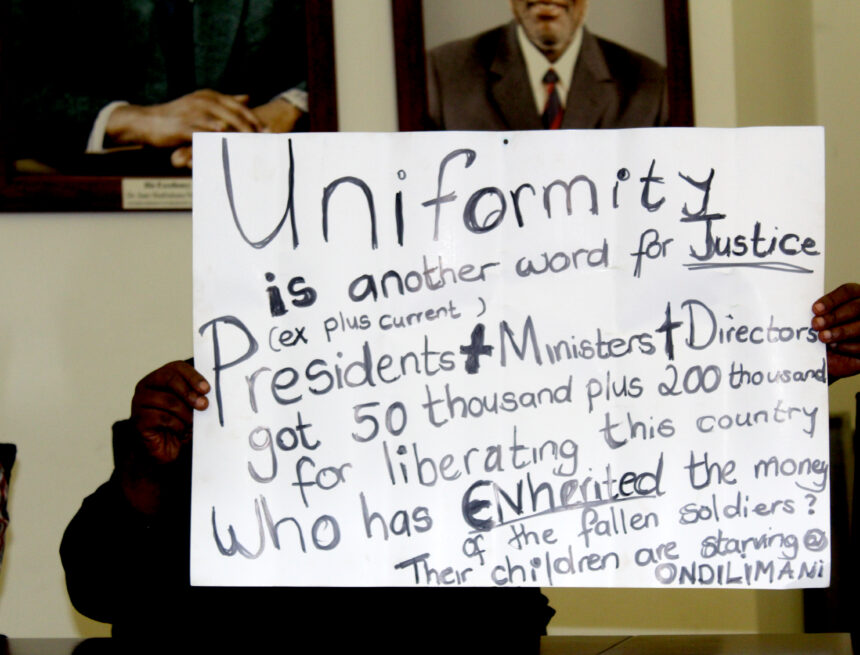 Uniformity
is another word for Justice
(ex plus current)
Presidents + Ministers + Directors
got 50 thousand plus 200 thousand
for liberating this country
Who has ENherited the money
of the fallen soldiers?
Their children are starving @
ONDILIMANi
His Excellency